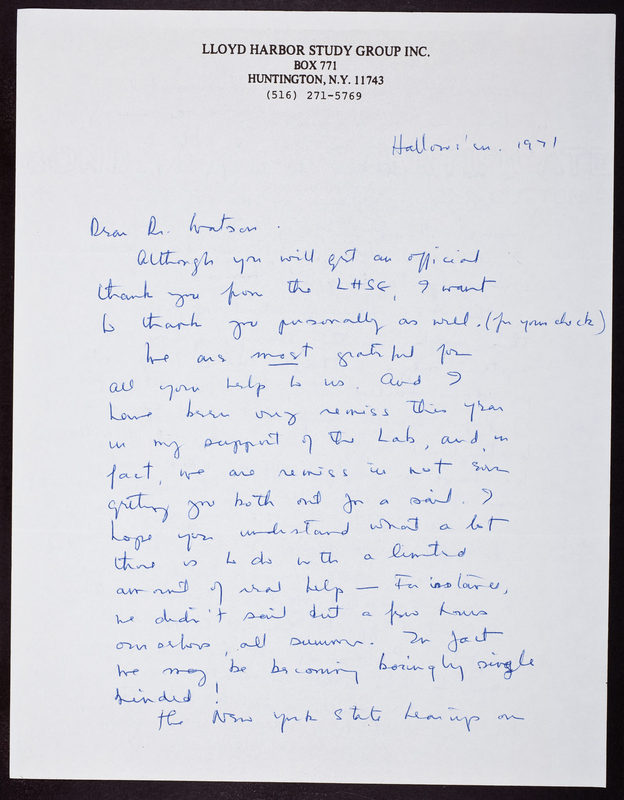 LLOYD HARBOR STUDY GROUP INC.
BOX 771
HUNTINGTON, N.Y. 11743
(516) 271-5769
Hallowe'en. 1971
Dear Dr. Watson.
Although you will get an official
thank you from the LHSG, I want
to thank you personally as well. (for your check)
We are most grateful for
all your help to us. And I
have been very remiss this year
in my support of the Lab, and, in
fact, we are remiss in not even
getting you both out for a sail. I
hope you understand what a lot
there is to do with a limited
amount of real help — For instance,
we didn't sail but a few hours
ourselves, all summer. In fact
we may be becoming boringly single
minded!
The New York State hearings on